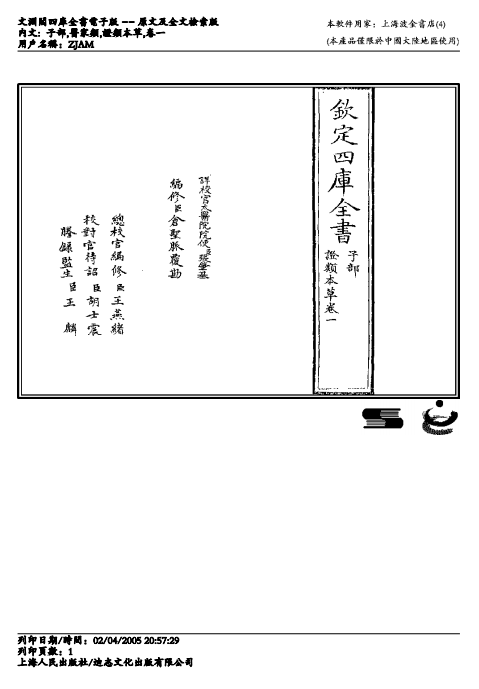 文淵閣四庫全書電子版 -- 原文及全文檢索版
內文: 子部,醫家類,證類本草,卷一
用戶名稱: ZJAM
本軟件用家: 上海波金書店(4)
(本產品僅限於中國大陸地區使用)
欽定四庫全書
子部
證類本草卷一
詳校官太醫院院使臣張肇基
編修臣倉聖脈覆勘
總校官編修臣王燕緒
校對官待詔臣胡士震
謄錄監生臣王麟
列印日期/時間: 02/04/2005 20:57:29
列印頁數: 1
上海人民出版社/迪志文化出版有限公司